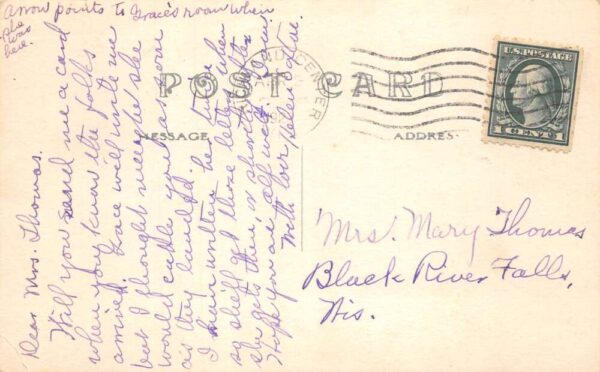 Arrow points to Grace's room when
she
was
here.
POST CARD
MESSAGE
ADDRESS
U.S. POSTAGE
1 CENT 1
Dear Mrs. Thomas.
Will you send me a card
when you know the folks
arrived. Grace will write me
but I thought maybe she
would cable you as soon
as they landed.
I have written her twice
so she'll get those letters when
she gets there, is
Hope you are all well
With love, Helen
Mrs. Mary Thomas
Black River Falls,
Wis.